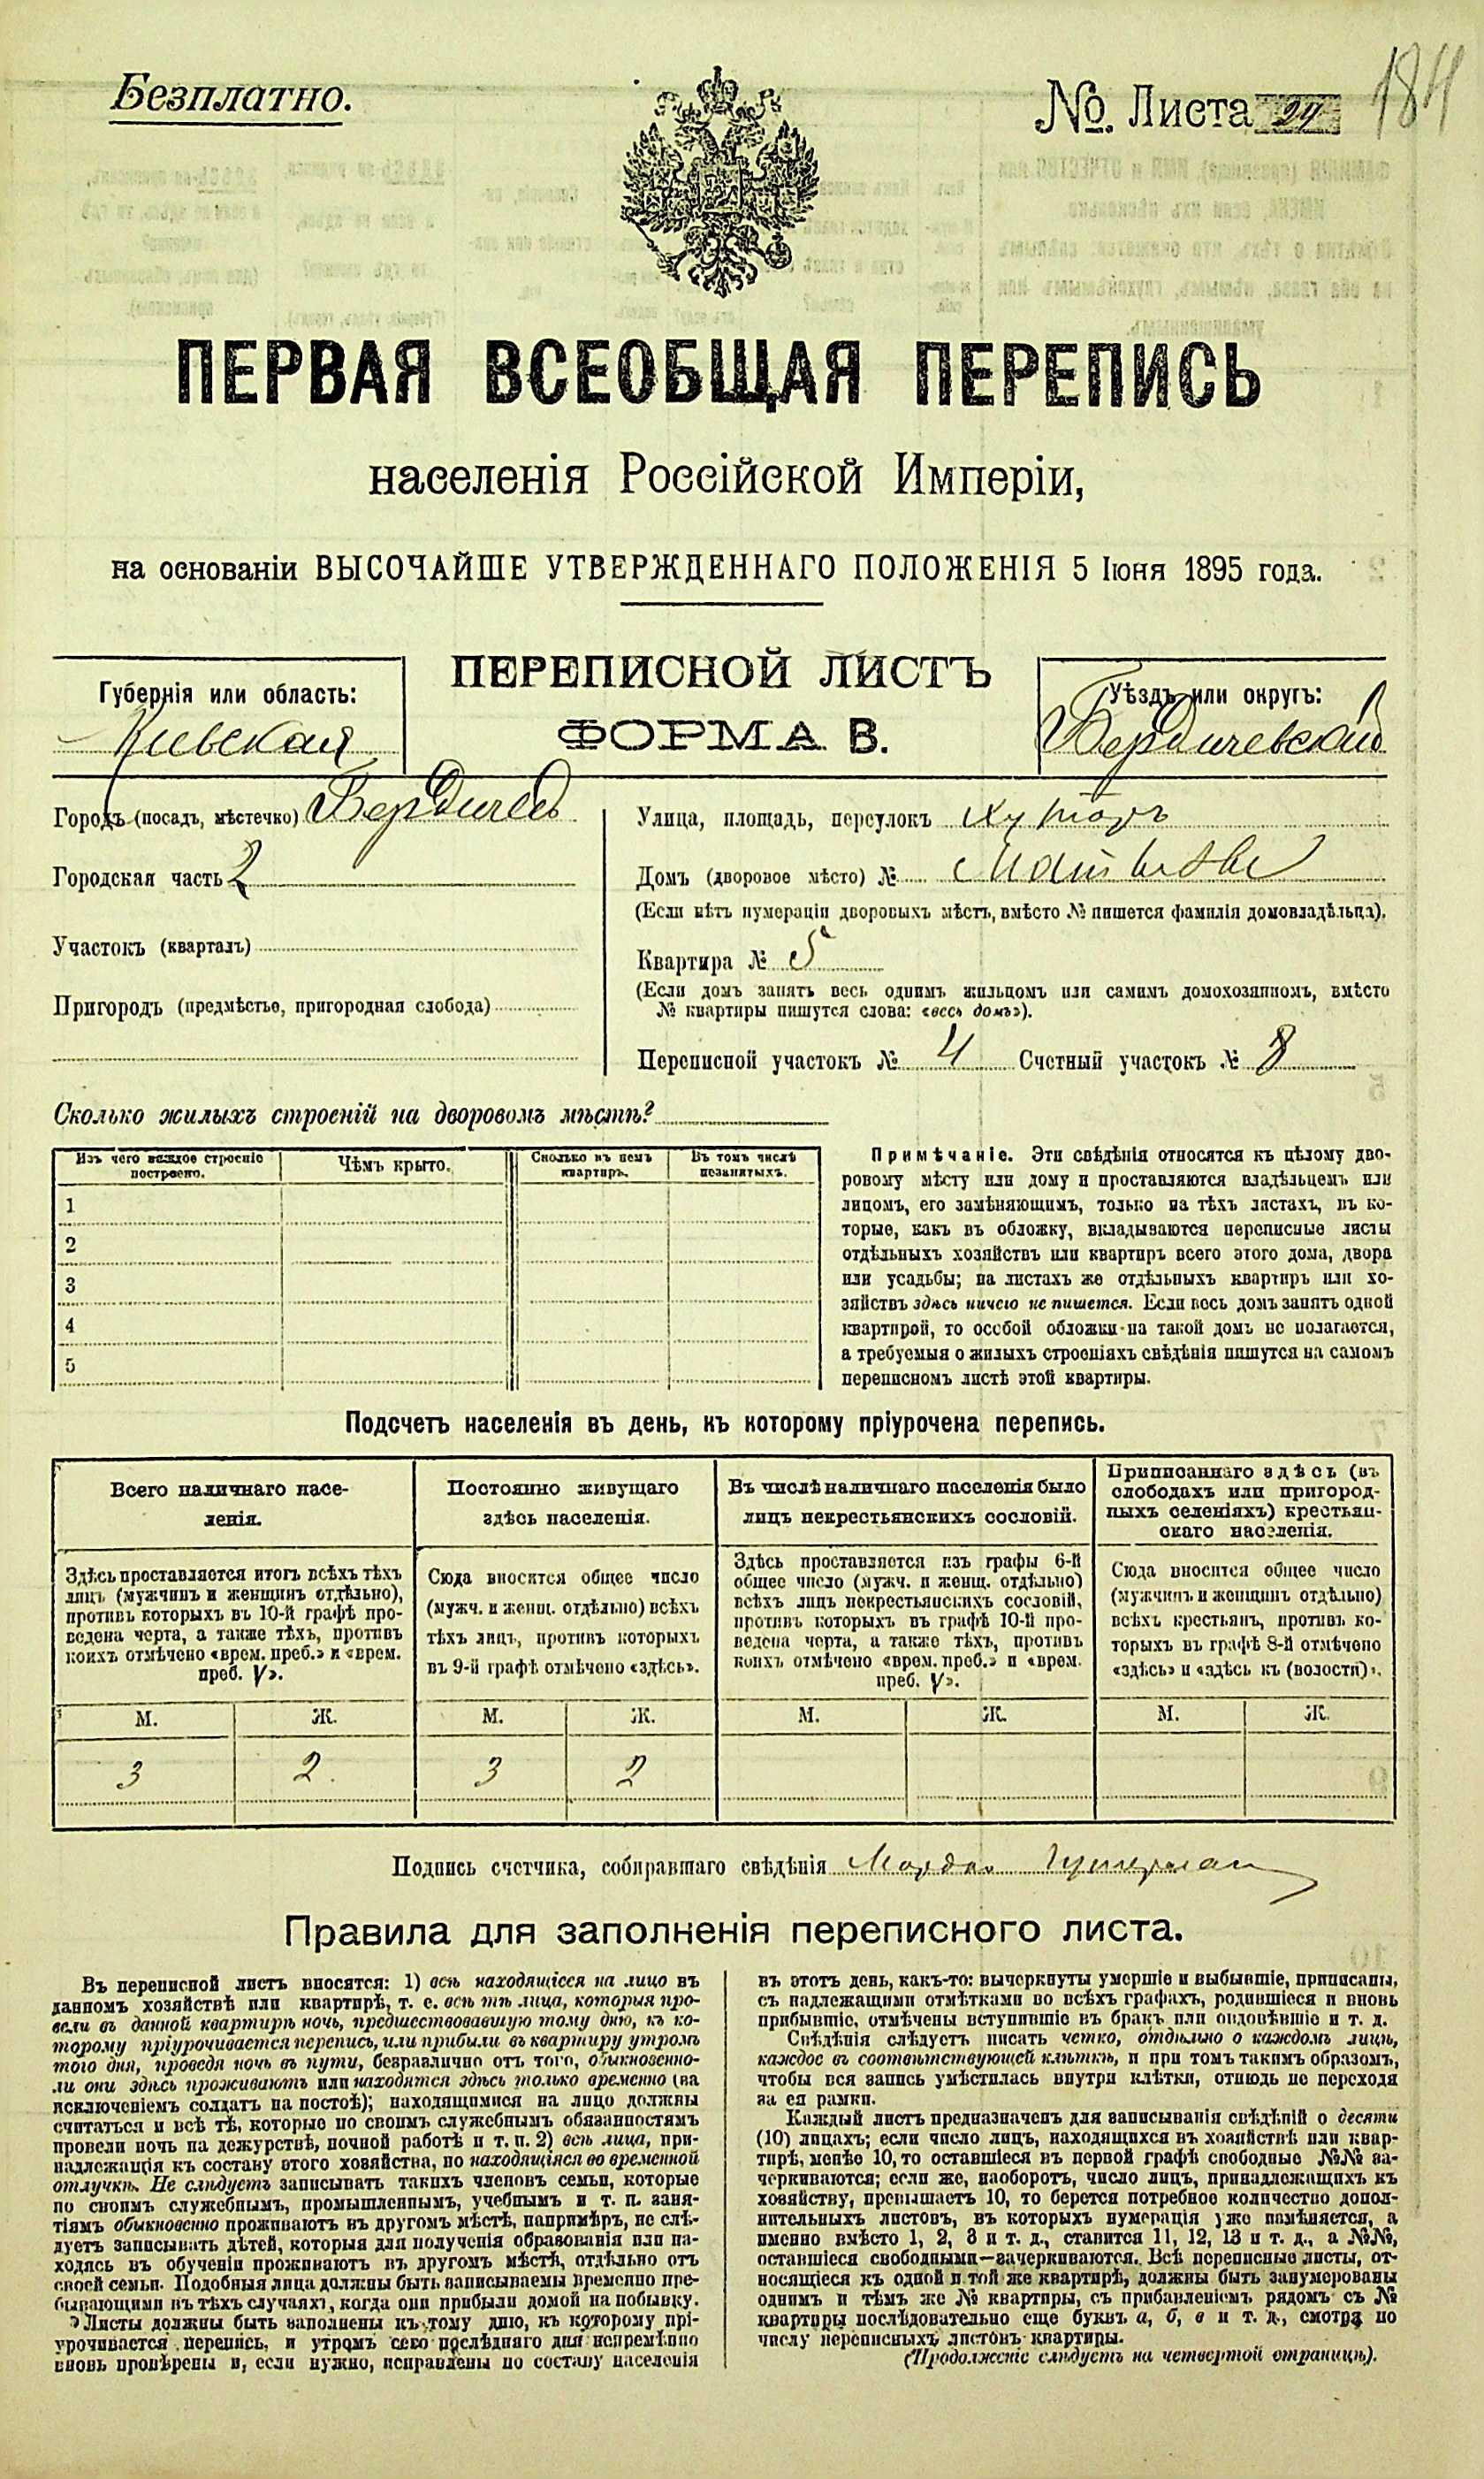 Безплатно.
№ Листа 24
184
ПЕРВАЯ ВСЕОБЩАЯ ПЕРЕПИСЬ
населенія Россійской Имперіи,
на основаніи ВЫСОЧАЙШЕ УТВЕРЖДЕННАГО ПОЛОЖЕНІЯ 5 Іюня 1895 года.
ПЕРЕПИСНОЙ ЛИСТЪ
ФОРМА В.
Губернія или область:
Кіевская
Уѣздъ или округъ:
Бердичевскій
Городъ (посадъ, мѣстечко) Бердичевъ
Городская часть 2
Участокъ (кварталъ)
Пригородъ (предмѣстье, пригородная слобода)
Улица, площадь, переулокъ хуторъ
Домъ (дворовое мѣсто) №
(Если нѣтъ нумераціи дворовыхъ мѣстъ, вмѣсто № пишется фамилія домовладѣльца).
Квартира № 5
(Если домъ занятъ весь однимъ жильцомъ или самимъ домохозяиномъ, вмѣсто
№ квартиры пишутся слова: «весь домъ»).
Переписной участокъ № 4 Счетный участокъ № 8
Сколько жилыхъ строеній на дворовомъ мѣстѣ?
Изъ чего каждое строеніе
построено.
Чѣмъ крыто.
Сколько въ немъ
квартиръ.
Въ томъ числѣ
незанятыхъ.
1
2
3
4
5
Примѣчаніе. Эти свѣдѣнія относятся къ цѣлому дво-
ровому мѣсту или дому и проставляются владѣльцемъ или
лицомъ, его замѣняющимъ, только на тѣхъ листахъ, въ ко-
торые, какъ въ обложку, вкладываются переписные листы
отдѣльныхъ хозяйствъ или квартиръ всего этого дома, двора
или усадьбы; на листахъ же отдѣльныхъ квартиръ или хо-
зяйствъ здѣсь ничего не пишется. Если весь домъ занятъ одной
квартирой, то особой обложки на такой домъ не полагается,
а требуемыя о жилыхъ строеніяхъ свѣдѣнія пишутся на самомъ
переписномъ листѣ этой квартиры.
Подсчетъ населенія въ день, къ которому пріурочена перепись.
Всего наличнаго насе-
ленія.
Постоянно живущаго
здѣсь населенія.
Въ числѣ наличнаго населенія было
лицъ некрестьянскихъ сословій.
Приписаннаго здѣсь (въ
слободахъ или пригород-
ныхъ селеніяхъ) крестьян-
скаго населенія.
Здѣсь проставляется итогъ всѣхъ тѣхъ
лицъ (мужчинъ и женщинъ отдѣльно),
противъ которыхъ въ 10-й графѣ про-
ведена черта, а также тѣхъ, противъ
коихъ отмѣчено «врем. преб.» и «врем.
преб. V».
Сюда вносится общее число
(мужч. и женщ. отдѣльно) всѣхъ
тѣхъ лицъ, противъ которыхъ
въ 9-й графѣ отмѣчено «здѣсь».
Здѣсь проставляется изъ графы 6-й
общее число (мужч. и женщ. отдѣльно)
всѣхъ лицъ некрестьянскихъ сословій,
противъ которыхъ въ графѣ 10-й про-
ведена черта, а также тѣхъ, противъ
коихъ отмѣчено «врем. преб.» и «врем.
преб. V».
Сюда вносится общее число
(мужчинъ и женщинъ отдѣльно)
всѣхъ крестьянъ, противъ ко-
торыхъ въ графѣ 8-й отмѣчено
«здѣсь» и «здѣсь къ (волости)».
М. Ж. М. Ж. М. Ж. М. Ж.
3 2 3 2
Подпись счетчика, собиравшаго свѣдѣнія
Правила для заполненія переписного листа.
Въ переписной листъ вносятся: 1) всѣ находящіеся на лицо въ
данномъ хозяйствѣ или квартирѣ, т. е. всѣ тѣ лица, которыя про-
вели въ данной квартирѣ ночь, предшествовавшую тому дню, къ ко-
торому пріурочивается перепись, или прибыли въ квартиру утромъ
того дня, проведя ночь въ пути, безразлично отъ того, обыкновенно-
ли они здѣсь проживаютъ или находятся здѣсь только временно (за
исключеніемъ солдатъ на постоѣ); находящимися на лицо должны
считаться и всѣ тѣ, которые по своимъ служебнымъ обязанностямъ
провели ночь на дежурствѣ, ночной работѣ и т. п. 2) всѣ лица, при-
надлежащія къ составу этого хозяйства, но находящіяся во временной
отлучкѣ. Не слѣдуетъ записывать такихъ членовъ семьи, которые
по своимъ служебнымъ, промышленнымъ, учебнымъ и т. п. заня-
тіямъ обыкновенно проживаютъ въ другомъ мѣстѣ, напримѣръ, не слѣ-
дуетъ записывать дѣтей, которыя для полученія образованія или на-
ходясь въ обученіи проживаютъ въ другомъ мѣстѣ, отдѣльно отъ
своей семьи. Подобныя лица должны быть записываемы временно пре-
бывающими въ тѣхъ случаяхъ, когда они прибыли домой на побывку.
Листы должны быть заполнены къ тому дню, къ которому прі-
урочивается перепись, и утромъ сего послѣдняго дня непремѣнно
вновь провѣрены и, если нужно, исправлены по составу населенія
въ этотъ день, какъ-то: вычеркнуты умершіе и выбывшіе, приписаны,
съ надлежащими отмѣтками во всѣхъ графахъ, родившіеся и вновь
прибывшіе, отмѣчены вступившіе въ бракъ или овдовѣвшіе и т. д.
Свѣдѣнія слѣдуетъ писать четко, отдѣльно о каждомъ лицѣ,
каждое въ соотвѣтствующей клѣткѣ, и при томъ такимъ образомъ,
чтобы вся запись умѣстилась внутри клѣтки, отнюдь не переходя
за ея рамки.
Каждый листъ предназначенъ для записыванія свѣдѣній о десяти
(10) лицахъ; если число лицъ, находящихся въ хозяйствѣ или квар-
тирѣ, менѣе 10, то оставшіеся въ первой графѣ свободные №№ за-
черкиваются; если же, наоборотъ, число лицъ, принадлежащихъ къ
хозяйству, превышаетъ 10, то берется потребное количество допол-
нительныхъ листовъ, въ которыхъ нумерація уже измѣняется, а
именно вмѣсто 1, 2, 3 и т. д., ставится 11, 12, 13 и т. д., а №№,
оставшіеся свободными—зачеркиваются. Всѣ переписные листы, от-
носящіеся къ одной и той же квартирѣ, должны быть занумерованы
однимъ и тѣмъ же № квартиры, съ прибавленіемъ рядомъ съ №
квартиры послѣдовательно еще буквъ а, б, в и т. д., смотря по
числу переписныхъ листовъ квартиры.
(Продолженіе слѣдуетъ на четвертой страницѣ).